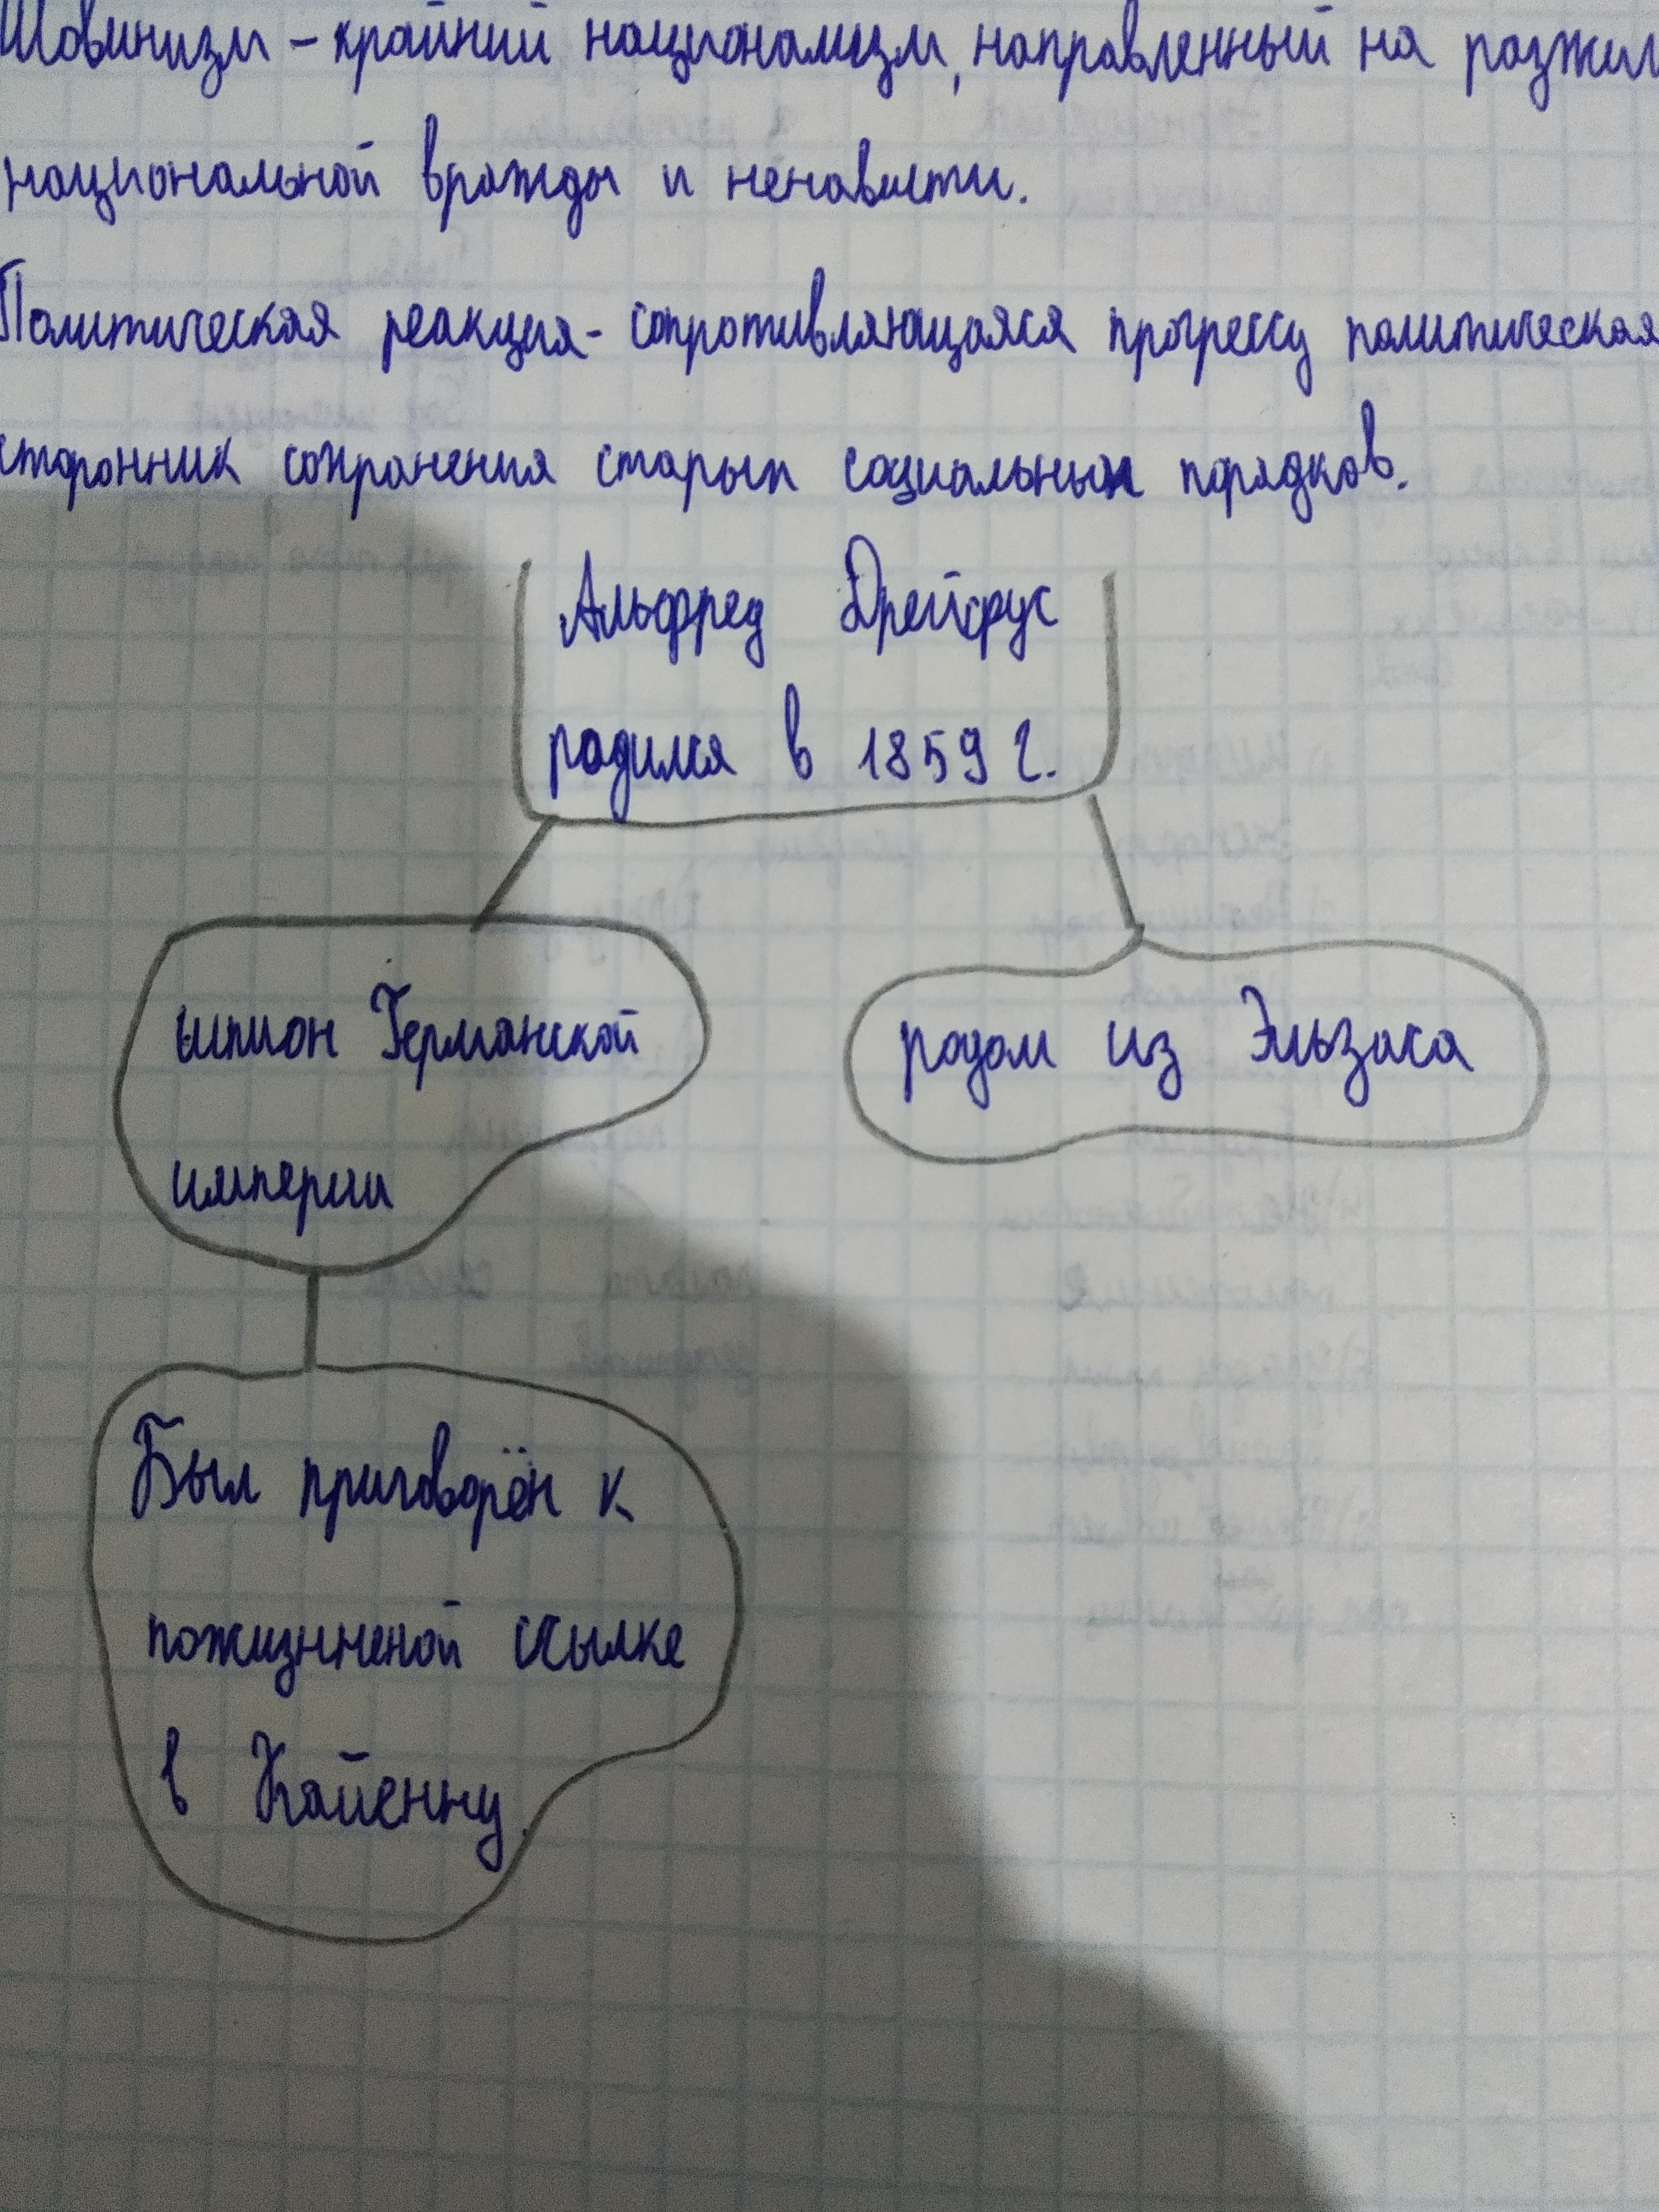 Шовинизм - крайний национализм, направленный на разжиг
национальной вражды и ненависти.
Политическая реакция - сопротивляющаяся прогрессу политическая
сторонник сохранения старых социальных порядков.
Альфред Дрейфус
родился в 1859 г.
шпион Германской
империи
родом из Эльзаса
Был приговорён к
пожизнненой ссылке
в Кайенну.